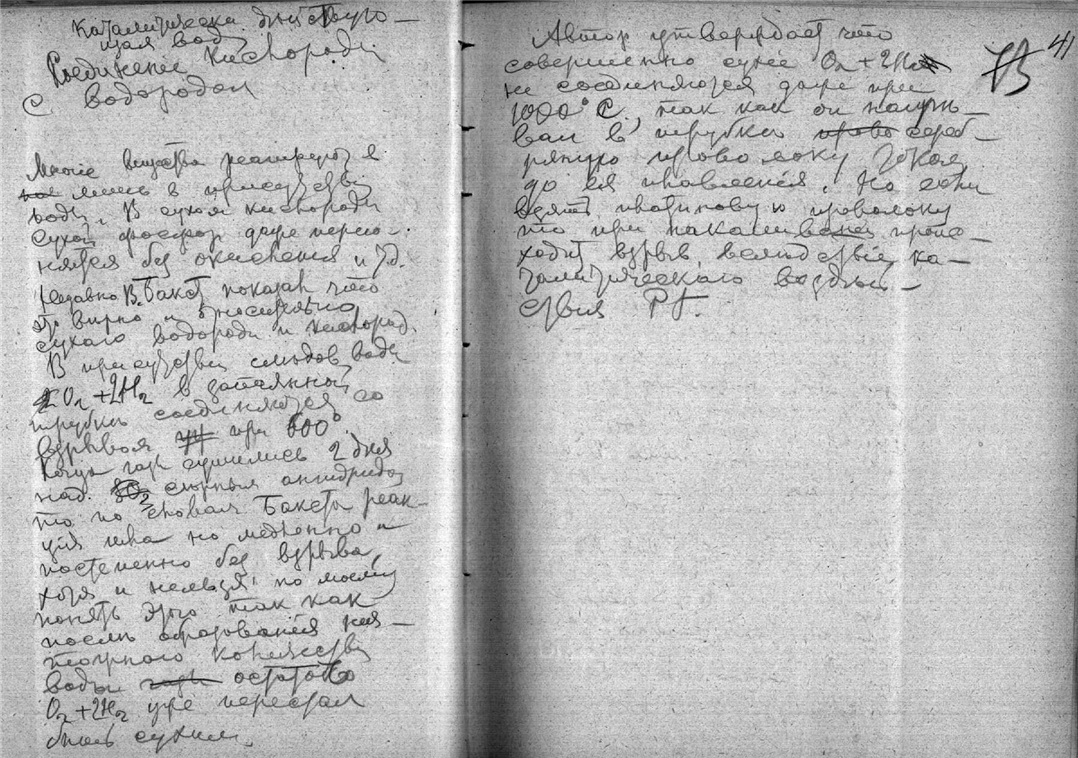 Каталитически действую-
щая вода
Соединение кислорода
с водородом
Многие вещества реагируют
лишь в присутствии
воды. В сухом кислороде
сухой фосфор даже перего-
няется без окисления и т.д.
Недавно В. Бакст показал что
это верно и относительно
сухаго водорода и кислород.
В присутствии следов воды
O2 + 2H2 в запаянной
трубке соединяются со
взрывом при 600°.
Когда газы сушились 2 дня
над SO2 фосфорным ангидридом
то по словам Бакста реак-
ция шла но медленно и
постепенно без взрыва,
хотя и нельзя по моему
понять этого так как
после образования ни-
чтожного количества
воды газы остаток
O2 + 2H2 уже перестал
быть сухим.
41
73
Автор утверждает что
совершенно сухие O2 + 2H2
не соединяются даже при
1000° C., так как он нагре-
вал в трубке прово сереб-
ряную проволоку током
до ея плавления. Но если
взять платиновую проволоку
то при накаливании проис-
ходит взрыв вследствие ка-
талитическаго воздей-
ствия Pt.